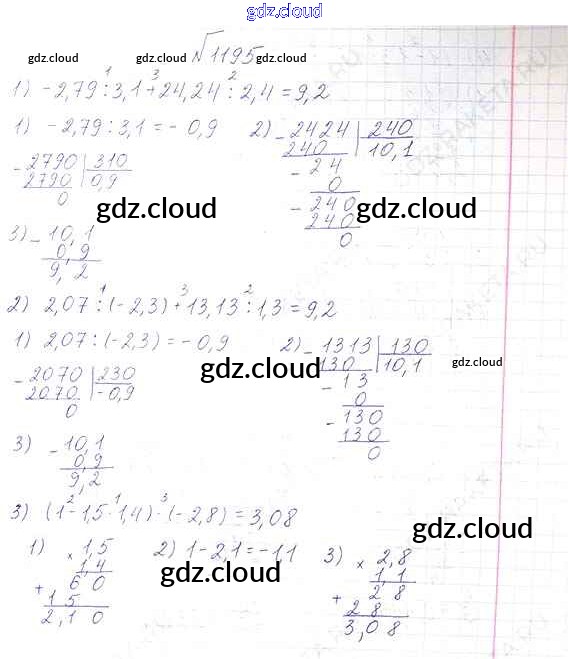 gdz.cloud
√1195
gdz.cloud gdz.cloud gdz.cloud
1 3 2
1) -2,79 : 3,1 + 24,24 : 2,4 = 9,2
1) -2,79 : 3,1 = -0,9 2) - 2424 | 240
240 10,1
- 2790 | 310 - 24
2790 0,9 0
0 - 240
240
0
gdz.cloud gdz.cloud
3) - 10,1
0,9
9,2
1 3 2
2) 2,07 : (-2,3) + 13,13 : 1,3 = 9,2
1) 2,07 : (-2,3) = -0,9 2) - 1313 | 130
130 10,1
- 2070 | 230 - 13
2070 -0,9 0
0 - 130
130
0
gdz.cloud gdz.cloud
3) - 10,1
0,9
9,2
2 1 3
3) (1 - 1,5 · 1,4) · (-2,8) = 3,08
gdz.cloud
1) × 1,5 2) 1 - 2,1 = -1,1 3) × 2,8
1,4 1,1
+ 60 + 28
15 28
2,10 3,08
gdz.cloud
gdz.cloud